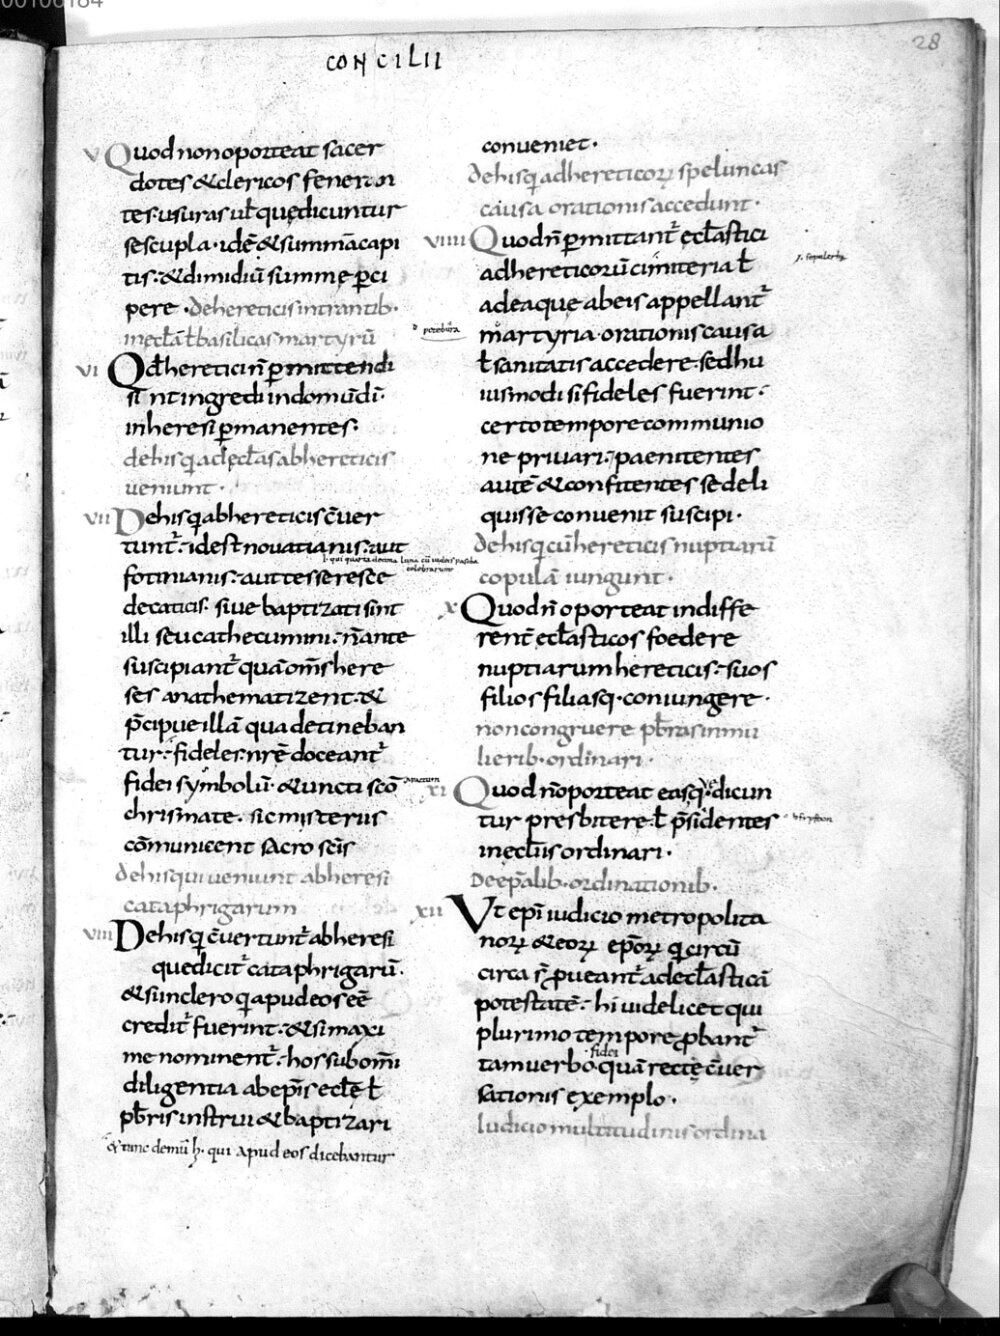 00106184
CONCILII
28
V Quod non oporteat sacer
dotes & clericos feneran
tes usuras ut̄ quę dicuntur
sescupla · idē & summā capi
tis · & dimidiū summę p̄ci
pere · de hereticis intrantib·
in ęcl̄ā ł basilicas martyrū
VI Qđ heretici n̄ ꝑmittendi
sint ingredi in domū dī·
in heresi ꝑmanentes·
de his q̄ ad ęcl̄as ab hereticis
veniunt ·
VII De his q̄ ab hereticis c̄ver
tunt̄ · id est novatianis · aut
ł qui quarta decima luna cū iudeis pascha
celebrarunt
fotinianis · aut tesseresce
decaticis · sive baptizati sint
illi seu cathecumini · n̄ ante
suscipiant̄ quā om̄s here
ses anathematizent · &
p̄cipue illā qua detineban
tur · fideles · nr̄ę doceant̄
fidei symbolū · & uncti sc̄o
chrismate · sic mysteriis
cōmunicent sacrosc̄is
de his qui veniunt ab heresi
cataphrigarum
VIII De his q̄ c̄vertunt̄ ab heresi
que dicit̄ cataphrigarū ·
& si in clero q̄ apud eos eē
credit̄ fuerint · & si maxi
me nominent̄ · hos sub om̄i
diligentia ab ep̄is eclę ł
pb̄ris instrui & baptizari
& tunc demū ħ · qui apud eos dicebantur
conveniet ·
de his q̄ ad hereticoꝝ speluncas
causa orationis accedunt ·
VIIII Quod n̄ ꝑmittant̄ ęcl̄astici
ad hereticorū cimiteria ł
ad ea que ab eis appellant̄
martyria · orationis causa
ł sanitatis accedere · sed hu
iusmodi si fideles fuerint ·
certo tempore communio
ne privari · paenitentes
autē & confitentes se deli
quisse convenit suscipi ·
de his q̄ cū hereticis nuptiarū
copulā iungunt ·
X Quod n̄ oporteat indiffe
rent̄ ęcl̄asticos foedere
nuptiarum hereticis · suos
filios filiasq · coniungere ·
non congruere pb̄ras in mu
lierib · ordinari ·
XI Quod n̄ oporteat eas q̄ dicun
tur presbitere · ł p̄sidentes
in ecl̄iis ordinari ·
De ep̄alib · ordinationib ·
XII Ut ep̄i iudicio metropolita
noꝝ & eoꝝ ep̄oꝝ q̄ circū
circa s̄ ꝓveant̄ ad ecl̄asticā
potestatē · hi videlicet qui
plurimo tempore ꝓbant̄
fidei
tam verbo · quā recte c̄ver
sationis exemplo ·
Iudicio multitudinis ordina